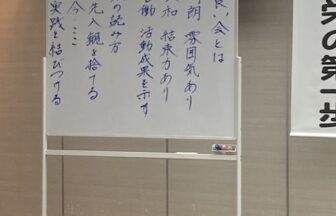 良い会とは
朗 雰囲気あり
和 結束力あり
働 活動成果を示す
の読み方
先入観を捨てる
今……
実践と結びつける